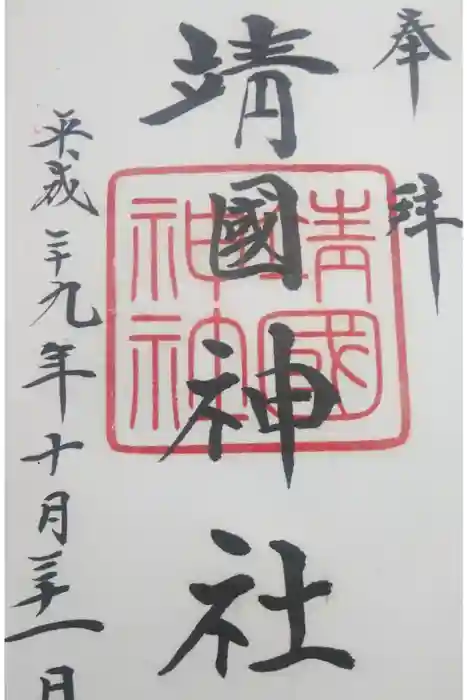 奉拝
靖國神社
靖國神社
平成二十九年十月三十一日